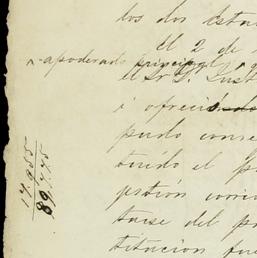 los dos Esta
El 2 de
apoderado principal
el Sr. D. Just
i ofreció
pudo conse
tuido el p
gestión conv
tarse del po
titucion fue
17.955
89.775